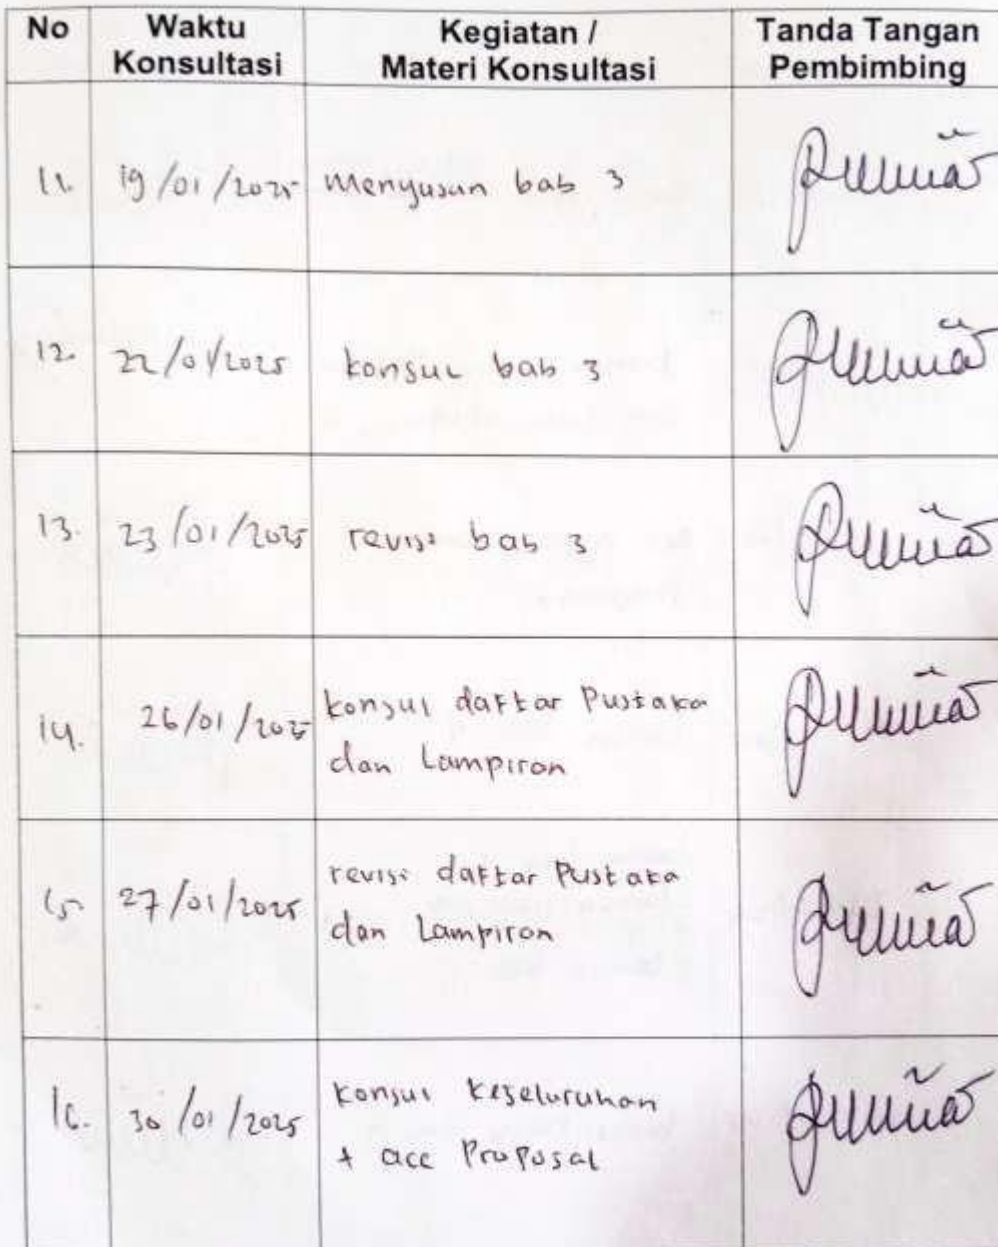 No Waktu Konsultasi Kegiatan / Materi Konsultasi Tanda Tangan Pembimbing
11. 19/01/2025 Menyusun bab 3
12. 22/01/2025 konsul bab 3
13. 23/01/2025 revisi bab 3
14. 26/01/2025 konsul daftar Pustaka
dan Lampiran
15 27/01/2025 revisi daftar Pustaka
dan Lampiran
16. 30/01/2025 konsul Keseluruhan
+ acc Proposal